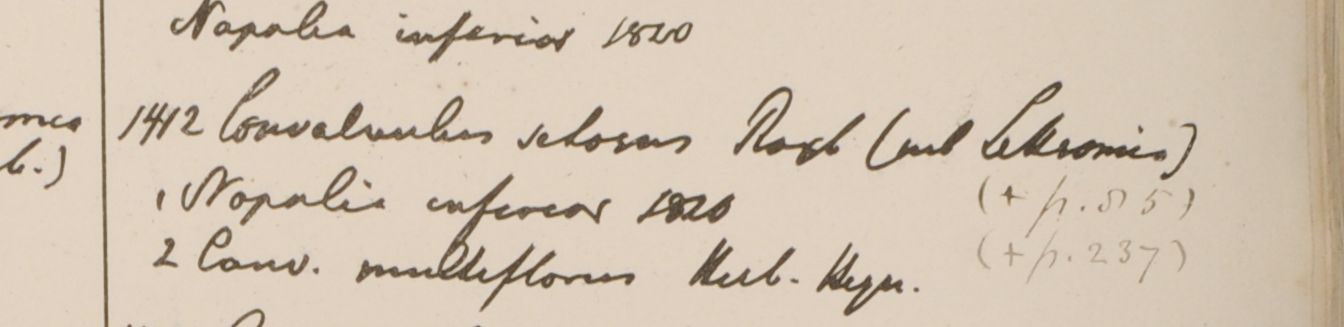 Napalia inferior 1820
mea
1412 Convalvulus setosus Roxb (sub Lettsomia)
b.)
1 Napalia inferior 1820 (+ p. 85)
2 Conv. multiflorus Herb. Heyn. (+ p. 237)